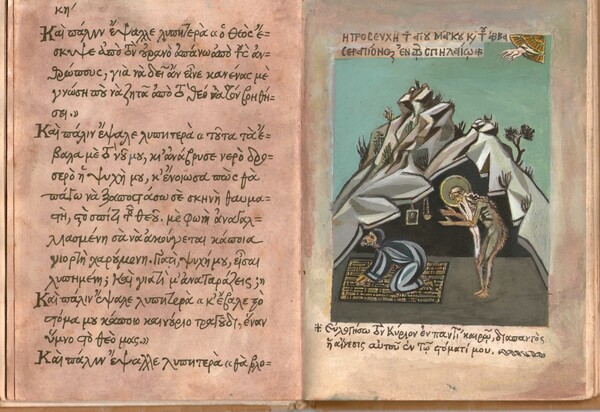 κή
Καὶ πάλιν ἔψαλλε λυπητερὰ «ὁ Θεὸς ἔσ-
κυψε ἀπὸ τὸν οὐρανὸ ἀπάνω ἀπὸ τοὺς ἀν-
θρώπους, γιὰ νὰ δεῖ ἂν εἶνε κανένας μὲ
γνώση ποὺ νὰ ζητᾶ ἀπὸ τὸ Θεὸ νὰ τὸν βοηθή-
σει.»
Καὶ πάλιν ἔψαλε λυπητερὰ «τοῦτα τὰ ἔ-
βαλα μὲ τὸ νοῦ μου, κι' ἀνάβρυσε νερὸ δρο-
σερὸ ἡ ψυχή μου, κ' ἔνοιωσα πὼς θὰ
πάγω νὰ ξαποστάσω σὲ σκηνὴ θαυμα-
στή, στὸ σπίτι τοῦ Θεοῦ. μὲ φωνὴ ἀναγαλ-
λιασμένη σὰ νὰ ἀκούγεται κάποια
γιορτὴ χαρούμενη. Γιατί, ψυχή μου, εἶσαι
λυπημένη; Καὶ γιατί μ' ἀναταράζεις;»
Καὶ πάλιν ἔψαλλε λυπητερὰ «κ' ἔβαλε στὸ
στόμα μου κάποιο καινούριο τραγούδι, ἕναν
ὕμνο στὸ θεό μας.»
Καὶ πάλιν ἔψαλλε λυπητερὰ «θὰ βλο-
Η ΠΡΟΣΕΥΧΗ τοῦ ΑΓΙΟΥ ΜΑΡΚΟΥ Κ τοῦ ΑΒΒΑ
ΣΕΡΑΠΙΟΝΟΣ ΕΝ Τῼ ΣΠΗΛΑΙῼ
Εὐλογήσω τὸν Κύριον ἐν παντὶ καιρῷ, διαπαντὸς
ἡ αἴνεσις αὐτοῦ ἐν τῷ στόματί μου.